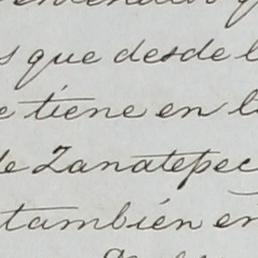 que desde
tiene en
de Zanatepec
también en